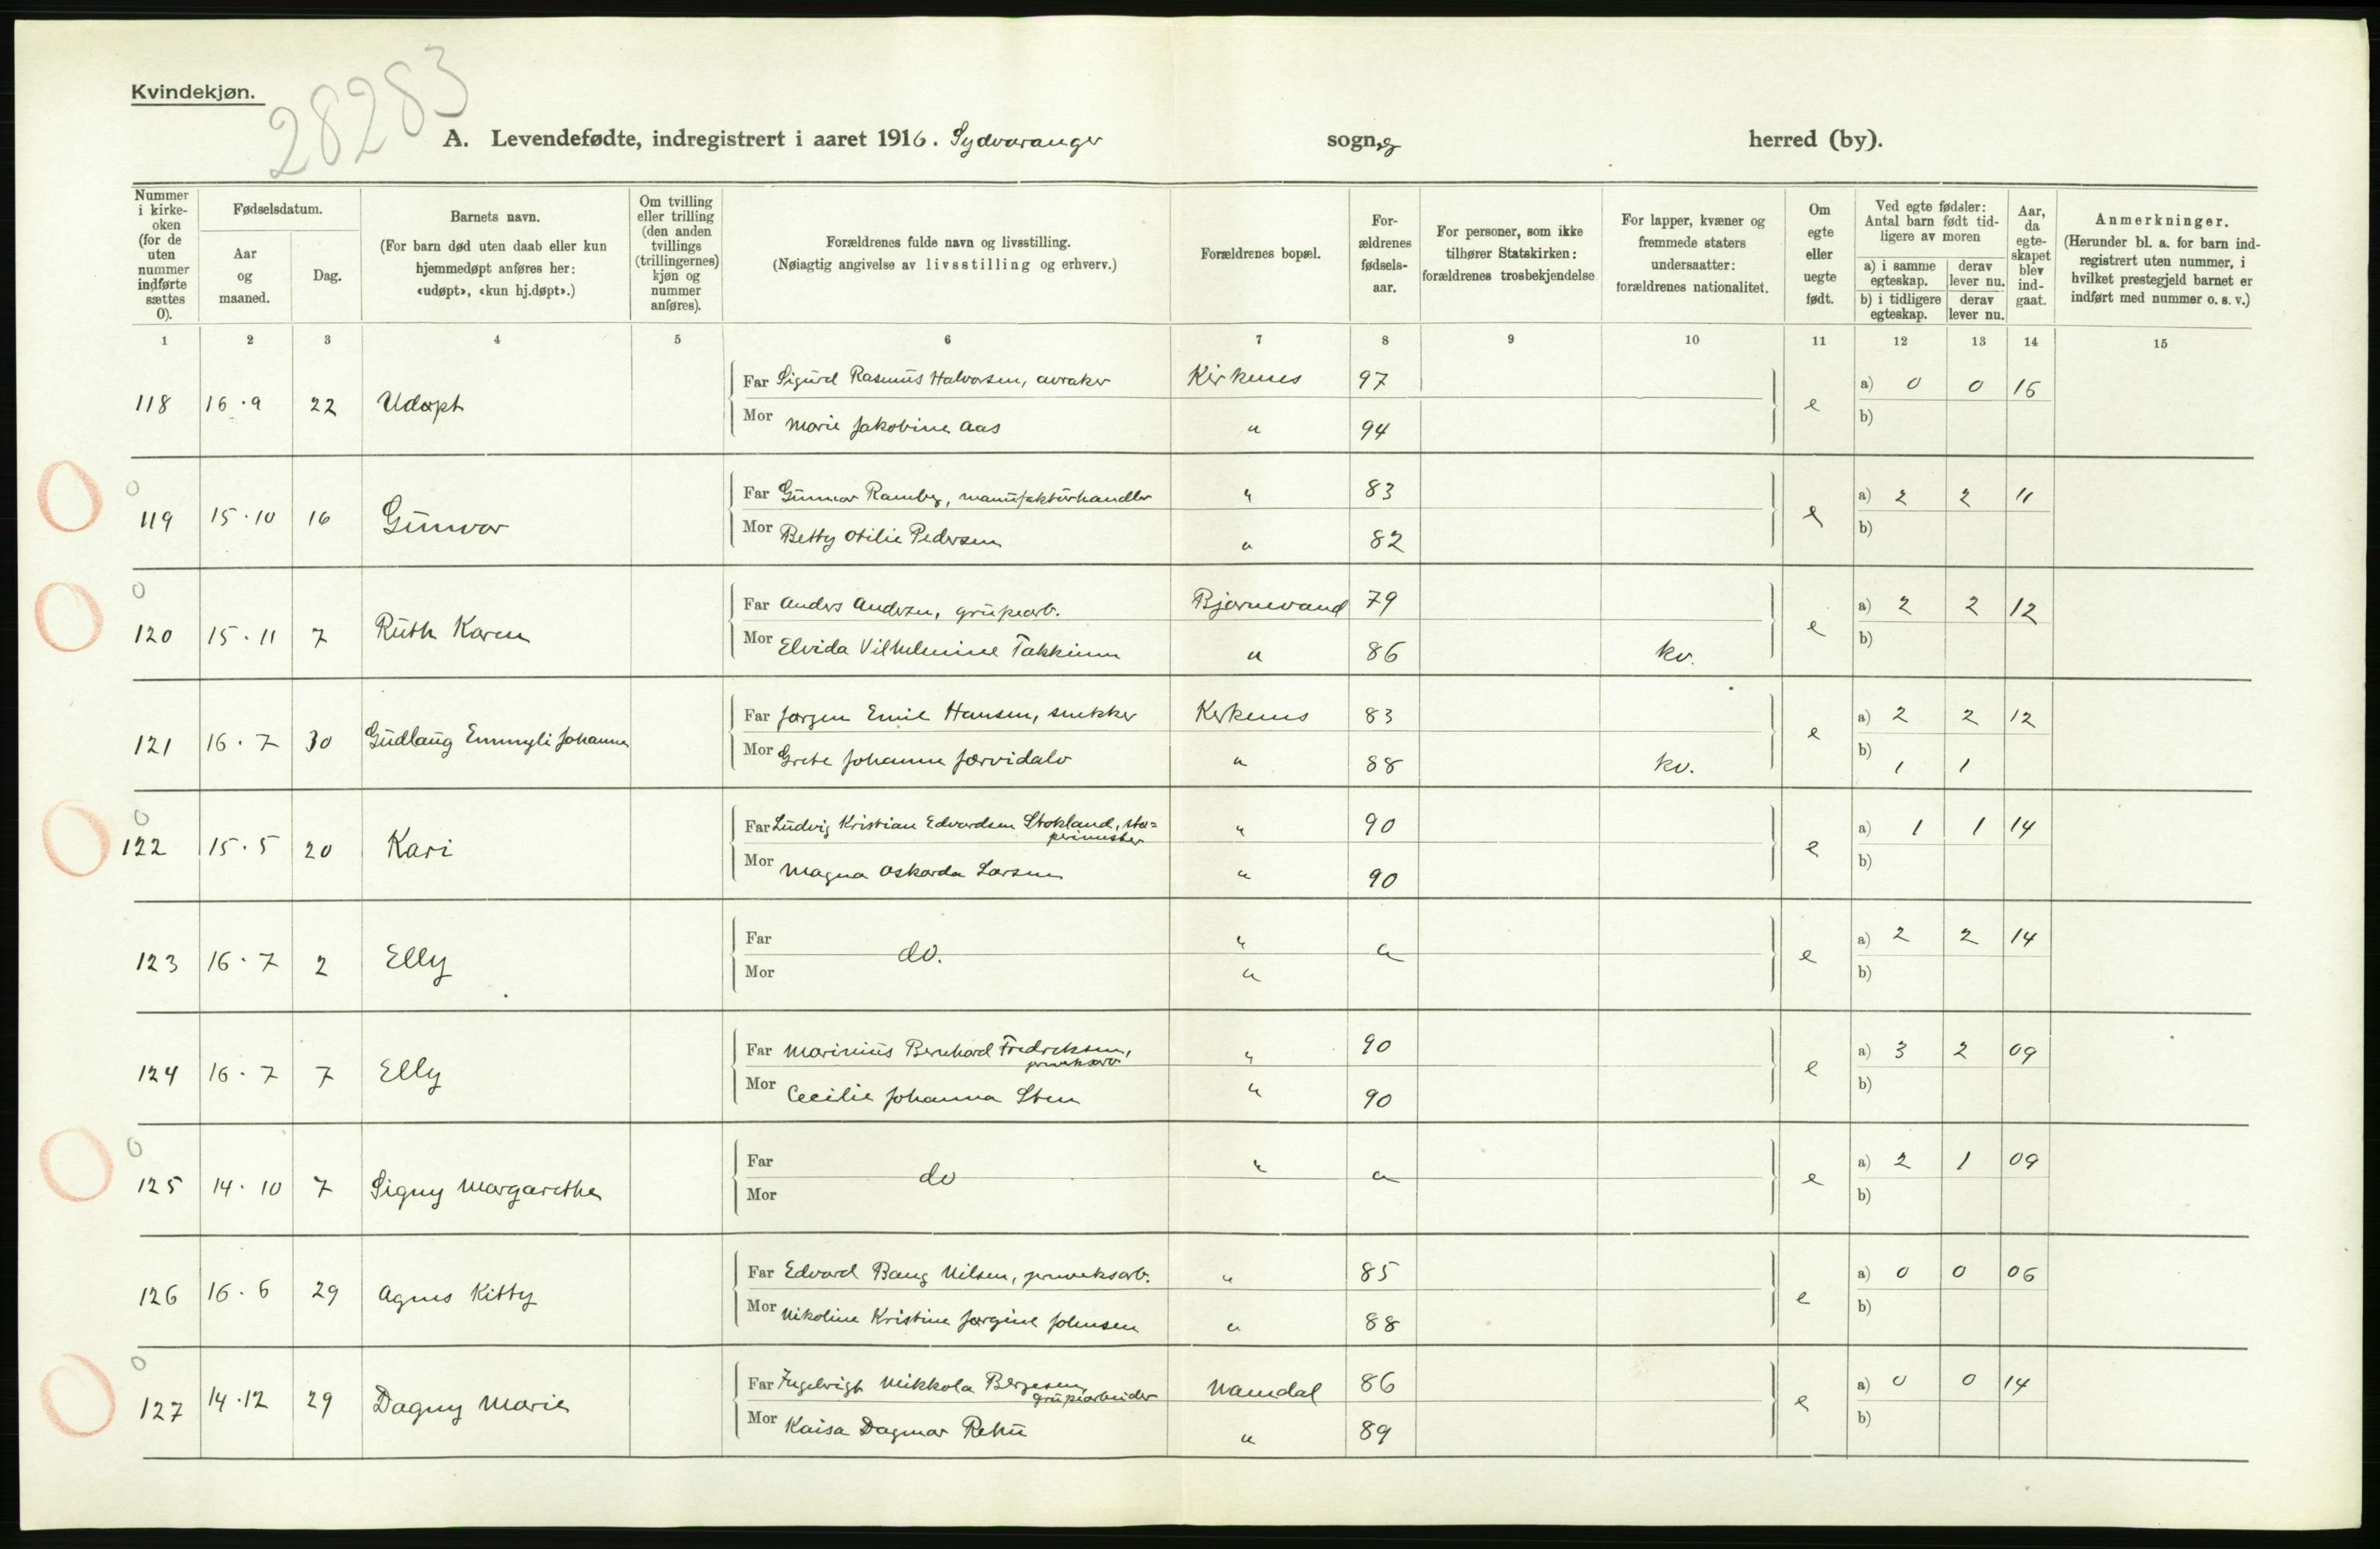 Kvindekjøn.
28283
A. Levendefødte, indregistrert i aaret 1916. Sydvaranger sogn, og herred (by).
Nummer i kirke-oken (for de uten nummer indførte sættes 0).
Fødselsdatum.
Aar og maaned.
Dag.
Barnets navn.
(For barn død uten daab eller kun hjemmedøpt anføres her: «udøpt», «kun hj.døpt».)
Om tvilling eller trilling (den anden tvillings (trillingernes) kjøn og nummer anføres).
Forældrenes fulde navn og livsstilling.
(Nøiagtig angivelse av livsstilling og erhverv.)
Forældrenes bopæl.
For-ældrenes fødsels-aar.
For personer, som ikke tilhører Statskirken: forældrenes trosbekjendelse
For lapper, kvæner og fremmede staters undersaatter: forældrenes nationalitet.
Om egte eller uegte født.
Ved egte fødsler: Antal barn født tid-ligere av moren
a) i samme egteskap. derav lever nu.
b) i tidligere egteskap. derav lever nu.
Aar, da egte-skapet blev ind-gaat.
Anmerkninger.
(Herunder bl. a. for barn ind-registrert uten nummer, i hvilket prestegjeld barnet er indført med nummer o. s. v.)
1 2 3 4 5 6 7 8 9 10 11 12 13 14 15
118 16·9 22 Udøpt Far Sigurd Rasmus Halvorsen, avraker Kirkenes 97 e a) 0 0 16
Mor Marie Jakobine Aas " 94 b)
0
119 15·10 16 Gunvor Far Gunnar Ramberg, manufakturhandler " 83 e a) 2 2 11
Mor Betty Otilie Pedersen " 82 b)
0
120 15·11 7 Ruth Karen Far Anders Andersen, grubearb. Bjørnevand 79 e a) 2 2 12
Mor Elvida Vilhelmine Takkinen " 86 kv. b)
121 16·7 30 Gudlaug Emmyli Johanne Far Jørgen Emil Hansen, snekker Kirkenes 83 e a) 2 2 12
Mor Grete Johanne Jærvidalo " 88 kv. b) 1 1
0
122 15·5 20 Kari Far Ludvig Kristian Edvardsen Stokland, " 90 e a) 1 1 14
Mor Magna Oskarda Larsen " 90 b)
123 16·7 2 Elly Far do. " " e a) 2 2 14
Mor " b)
124 16·7 7 Elly Far Marinius Bernhard Fredriksen, " 90 e a) 3 2 09
Mor Cecilie Johanna Sten " 90 b)
0
125 14·10 7 Signy Margarethe Far do " " e a) 2 1 09
Mor b)
126 16·6 29 Agnes Kitty Far Edvard Bang Nilsen, " 85 e a) 0 0 06
Mor Nikoline Kristine Jørgine Johnsen " 88 b)
0
127 14·12 29 Dagny Marie Far Ingebrigt Mikkola Bergesen, Namdal 86 e a) 0 0 14
grubearbeider
Mor Kaisa Dagmar Rehu " 89 b)